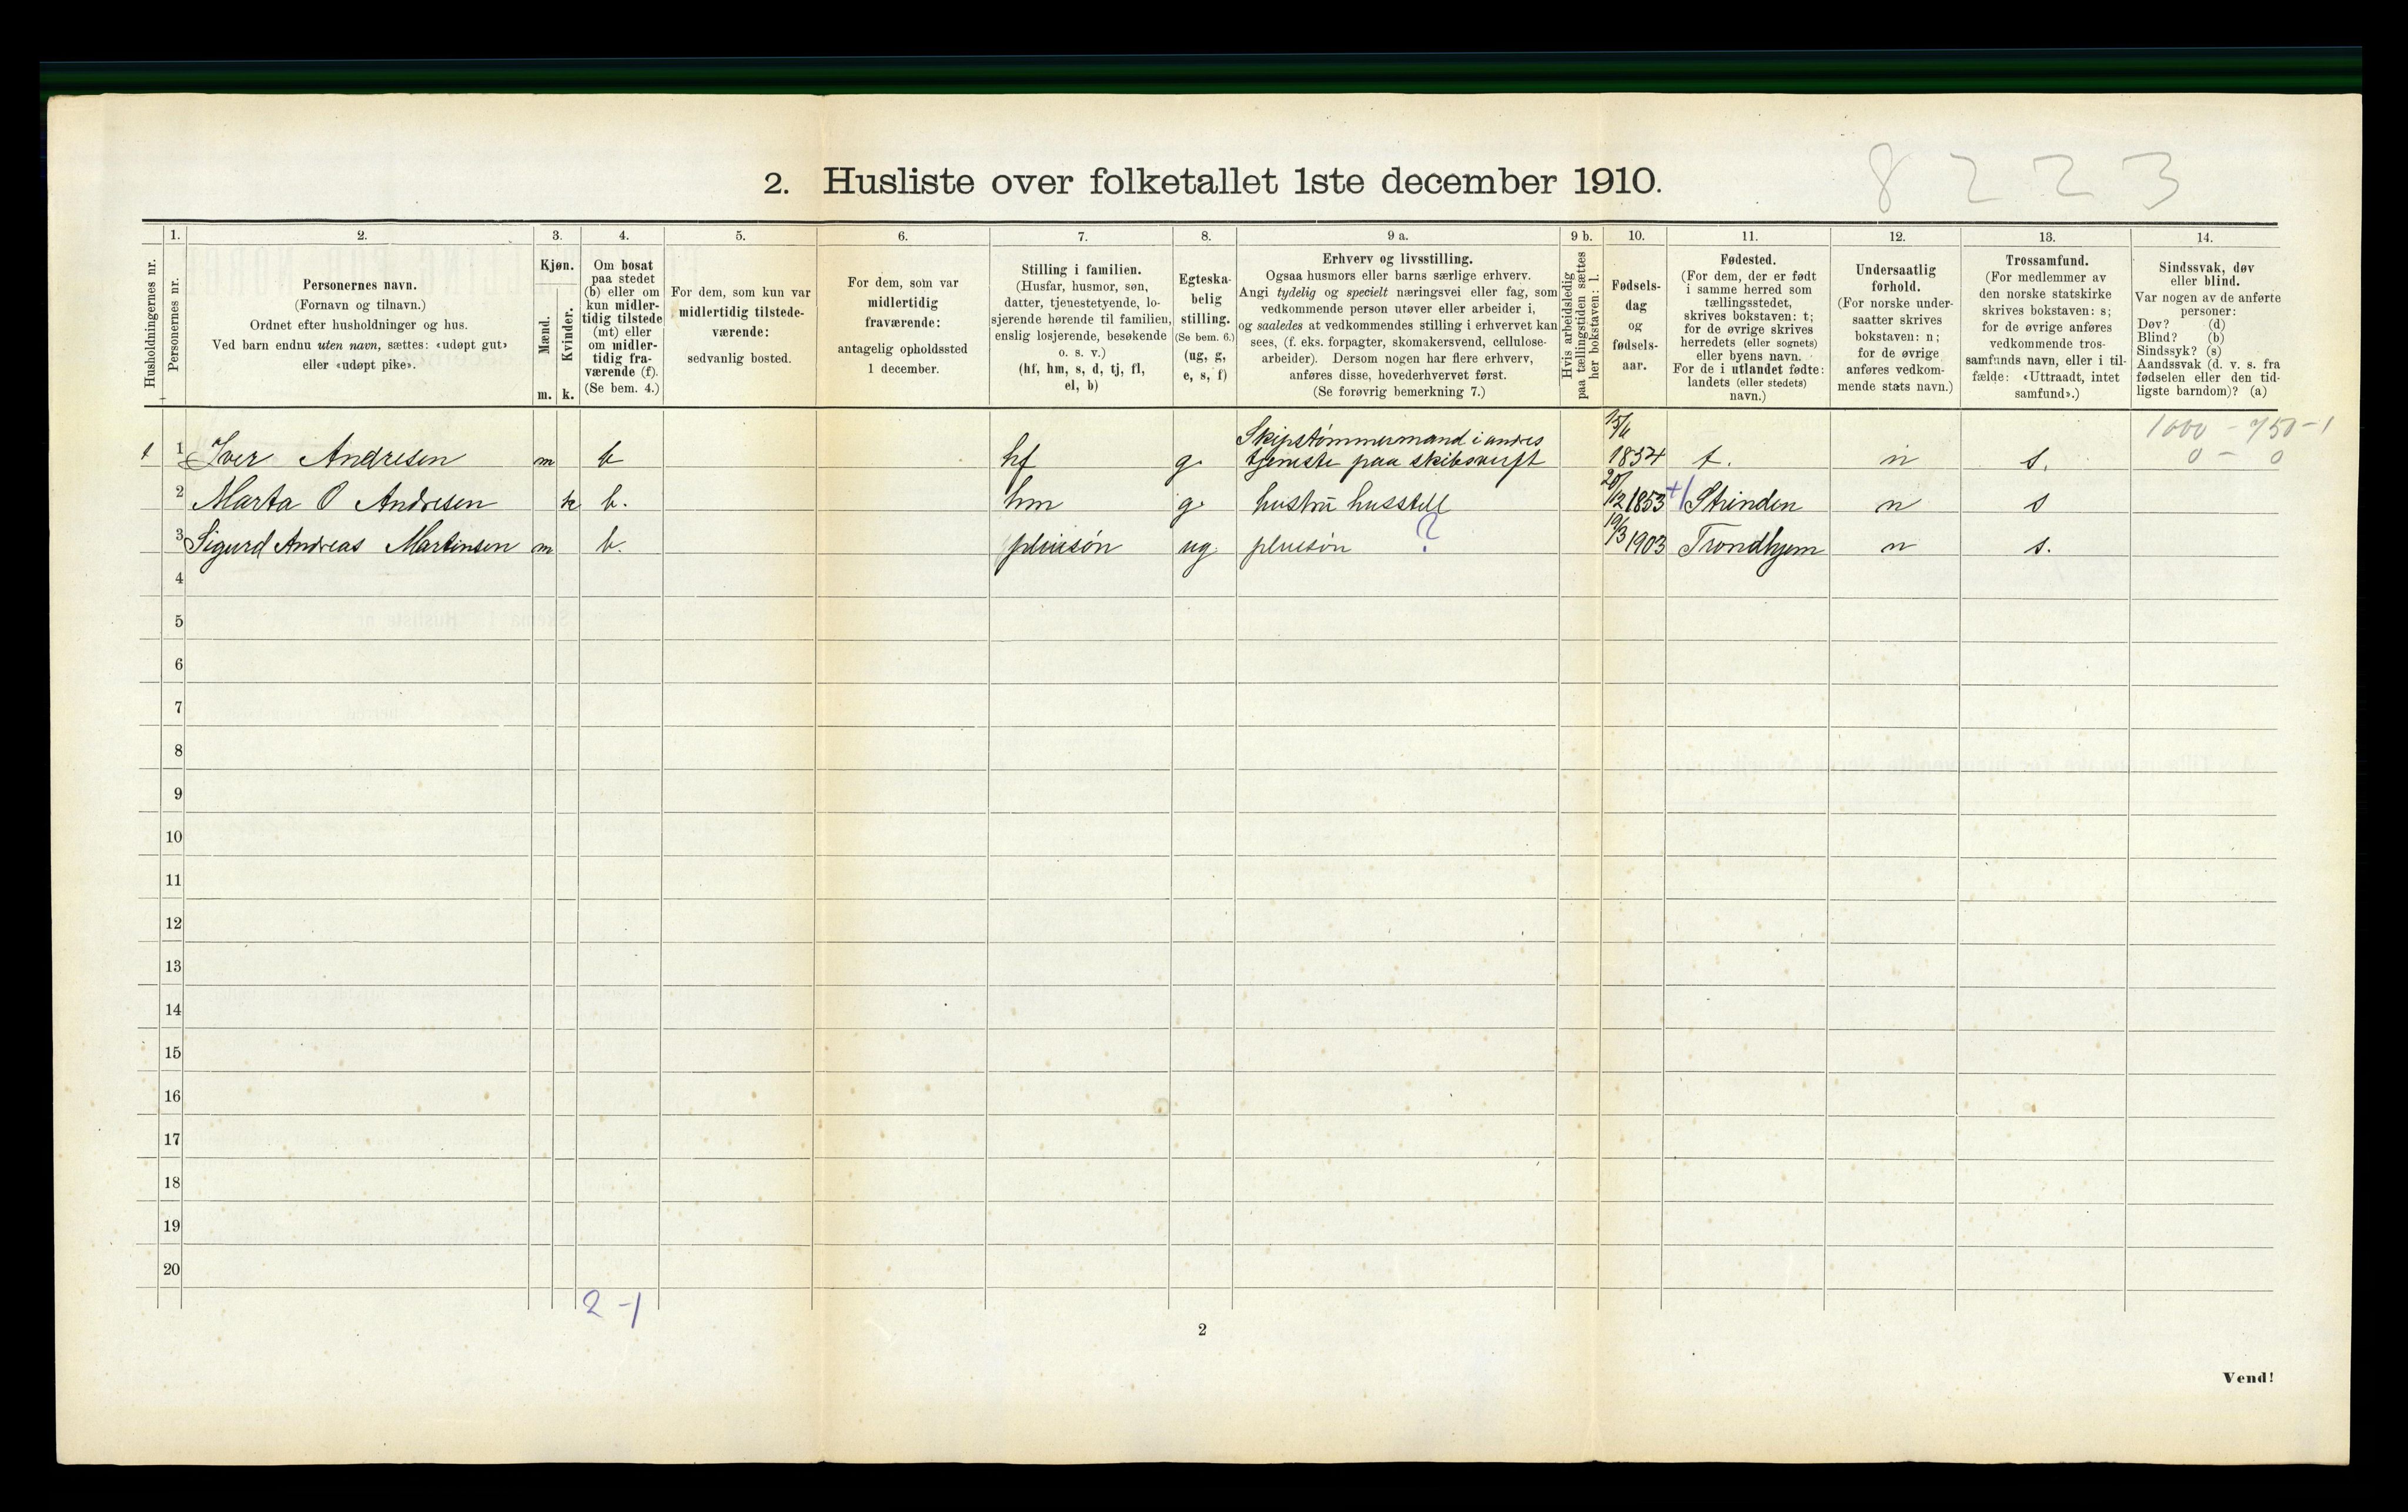 8 2 2 3
2. Husliste over folketallet 1ste december 1910.
Husholdningernes nr.
1.
Personernes nr.
2.
Personernes navn.
(Fornavn og tilnavn.)
Ordnet efter husholdninger og hus.
Ved barn endnu uten navn, sættes: «udøpt gut»
eller «udøpt pike».
3.
Kjøn.
Mænd.
Kvinder.
m. k.
4.
Om bosat
paa stedet
(b) eller om
kun midler-
tidig tilstede
(mt) eller
om midler-
tidig fra-
værende (f).
(Se bem. 4.)
5.
For dem, som kun var
midlertidig tilstede-
værende:
sedvanlig bosted.
6.
For dem, som var
midlertidig
fraværende:
antagelig opholdssted
1 december.
7.
Stilling i familien.
(Husfar, husmor, søn,
datter, tjenestetyende, lo-
sjerende hørende til familien,
enslig losjerende, besøkende
o. s. v.)
(hf, hm, s, d, tj, fl,
el, b)
8.
Egteska-
belig
stilling.
(Se bem. 6.)
(ug, g,
e, s, f)
9 a.
Erhverv og livsstilling.
Ogsaa husmors eller barns særlige erhverv.
Angi tydelig og specielt næringsvei eller fag, som
vedkommende person utøver eller arbeider i,
og saaledes at vedkommendes stilling i erhvervet kan
sees, (f. eks. forpagter, skomakersvend, cellulose-
arbeider). Dersom nogen har flere erhverv,
anføres disse, hovederhvervet først.
(Se forøvrig bemerkning 7.)
9 b.
Hvis arbeidsledig
paa tællingstiden sættes
her bokstaven: l.
10.
Fødsels-
dag
og
fødsels-
aar.
11.
Fødested.
(For dem, der er født
i samme herred som
tællingsstedet,
skrives bokstaven: t;
for de øvrige skrives
herredets (eller sognets)
eller byens navn.
For de i utlandet fødte:
landets (eller stedets)
navn.)
12.
Undersaatlig
forhold.
(For norske under-
saatter skrives
bokstaven: n;
for de øvrige
anføres vedkom-
mende stats navn.)
13.
Trossamfund.
(For medlemmer av
den norske statskirke
skrives bokstaven: s;
for de øvrige anføres
vedkommende tros-
samfunds navn, eller i til-
fælde: «Uttraadt, intet
samfund».)
14.
Sindssvak, døv
eller blind.
Var nogen av de anførte
personer:
Døv? (d)
Blind? (b)
Sindssyk? (s)
Aandssvak (d. v. s. fra
fødselen eller den tid-
ligste barndom)? (a)
1 1 Iver Andresen m b hf g. Skipstømmermand i andres
tjeneste paa skibsverft 1854 t. n s. 1000 - 750 - 1
0 - 0
2 Marta O Andresen k b. hm g. hustrü husstell 20/12 1853 Strinden n s
3 Sigurd Andreas Martinsen m b. pleiesøn ug. pleiesøn ? 19/3 1903 Trondhjem n s.
4
5
6
7
8
9
10
11
12
13
14
15
16
17
18
19
20
2 - 1
2
Vend!